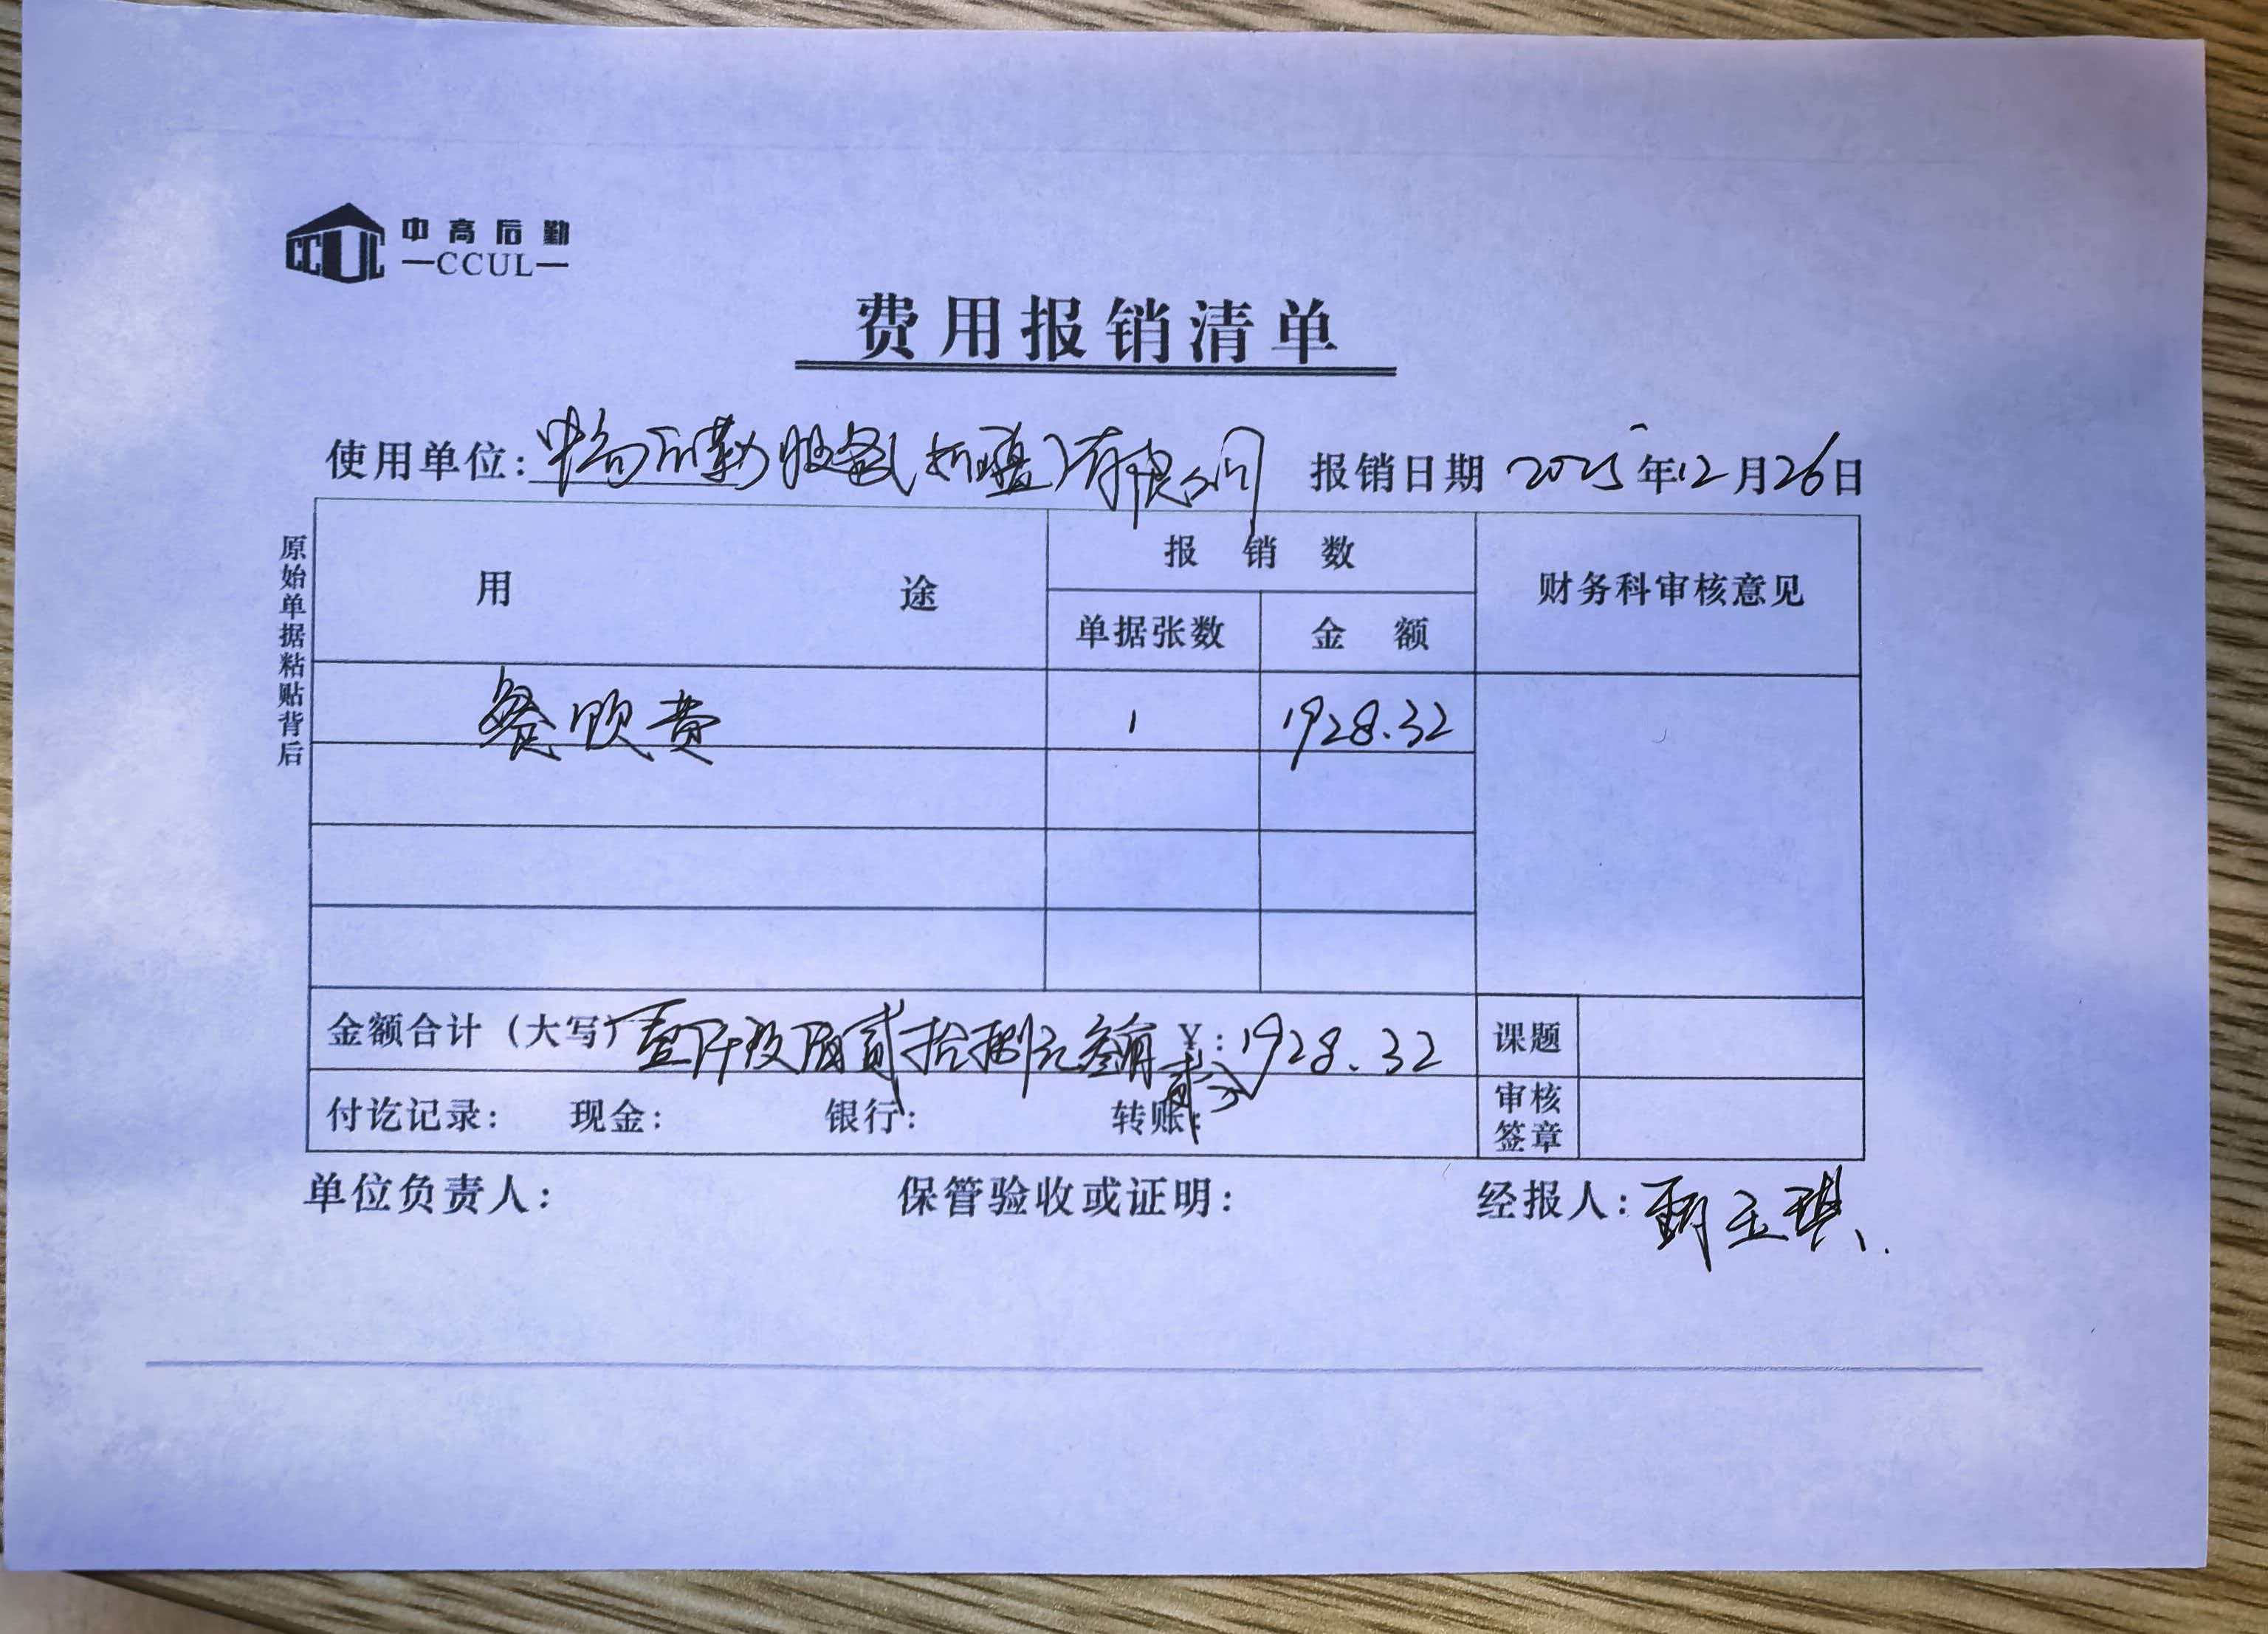 中高后勤
—CCUL—
CCUL
费用报销清单
使用单位：中高后勤服务（）有限公司 报销日期 2025年12月26日
原始单据粘贴背后
用途 报销数 财务科审核意见
单据张数 金额
餐饮费 1 1928.32
金额合计（大写）壹仟玖佰贰拾捌元叁角贰分 ￥：1928.32 课题
付讫记录： 现金： 银行： 转账： 审核签章
单位负责人： 保管验收或证明： 经报人：玉琪